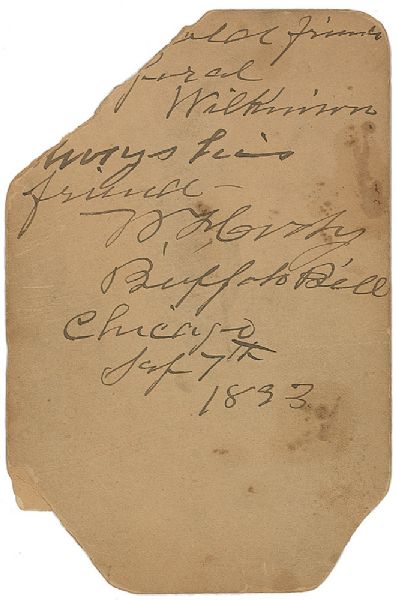 old friend
Wilkinson
ways his
friend –
W. F. Cody
Buffalo Bill
Chicago
Sep 7th
1893